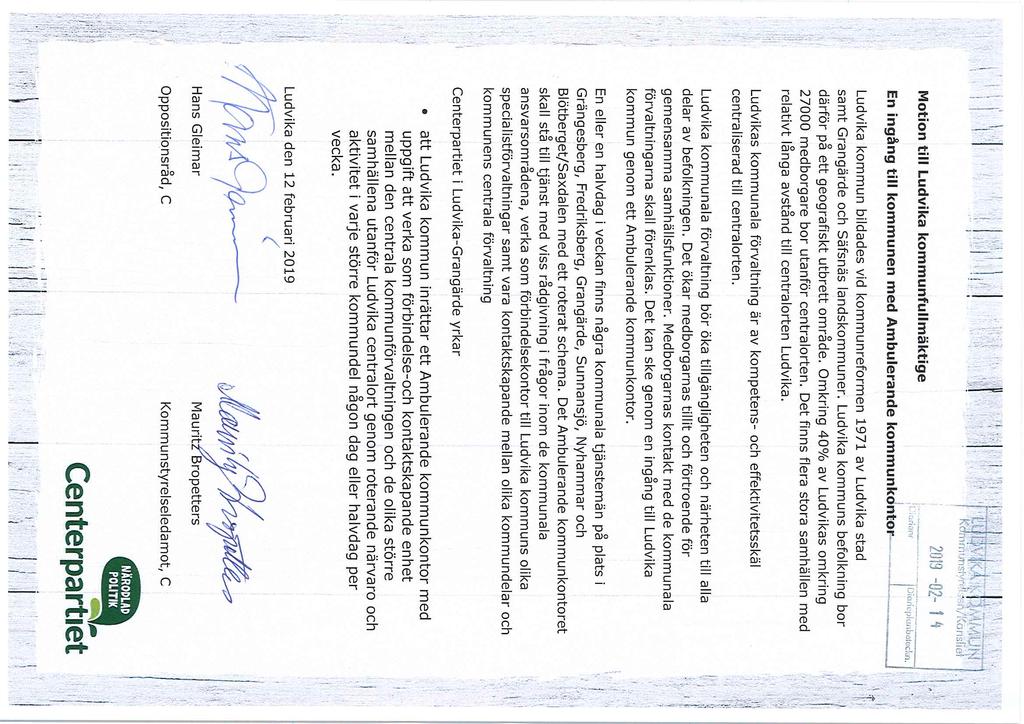 LUDVIKA KOMMUN
Kommunstyrelsen/Kansliet
2019 -02- 1 4
Diarienr
Diarieplanbeteckn.
Motion till Ludvika kommunfullmäktige
En ingång till kommunen med Ambulerande kommunkontor
Ludvika kommun bildades vid kommunreformen 1971 av Ludvika stad
samt Grangärde och Säfsnäs landskommuner. Ludvika kommuns befolkning bor
därför på ett geografiskt utbrett område. Omkring 40% av Ludvikas omkring
27000 medborgare bor utanför centralorten. Det finns flera stora samhällen med
relativt långa avstånd till centralorten Ludvika.
Ludvikas kommunala förvaltning är av kompetens- och effektivitetsskäl
centraliserad till centralorten.
Ludvika kommunala förvaltning bör öka tillgängligheten och närheten till alla
delar av befolkningen. Det ökar medborgarnas tillit och förtroende för
gemensamma samhällsfunktioner. Medborgarnas kontakt med de kommunala
förvaltningarna skall förenklas. Det kan ske genom en ingång till Ludvika
kommun genom ett Ambulerande kommunkontor.
En eller en halvdag i veckan finns några kommunala tjänstemän på plats i
Grängesberg, Fredriksberg, Grangärde, Sunnansjö, Nyhammar och
Blötberget/Saxdalen med ett roterat schema. Det Ambulerande kommunkontoret
skall stå till tjänst med viss rådgivning i frågor inom de kommunala
ansvarsområdena, verka som förbindelsekontor till Ludvika kommuns olika
specialistförvaltningar samt vara kontaktskapande mellan olika kommundelar och
kommunens centrala förvaltning
Centerpartiet i Ludvika-Grangärde yrkar
• att Ludvika kommun inrättar ett Ambulerande kommunkontor med
uppgift att verka som förbindelse-och kontaktskapande enhet
mellan den centrala kommunförvaltningen och de olika större
samhällena utanför Ludvika centralort genom roterande närvaro och
aktivitet i varje större kommundel någon dag eller halvdag per
vecka.
Ludvika den 12 februari 2019
Hans Gleimar
Mauritz Bropetters
Oppositionsråd, C
Kommunstyrelseledamot, C
NÄRODLAD
POLITIK
Centerpartiet